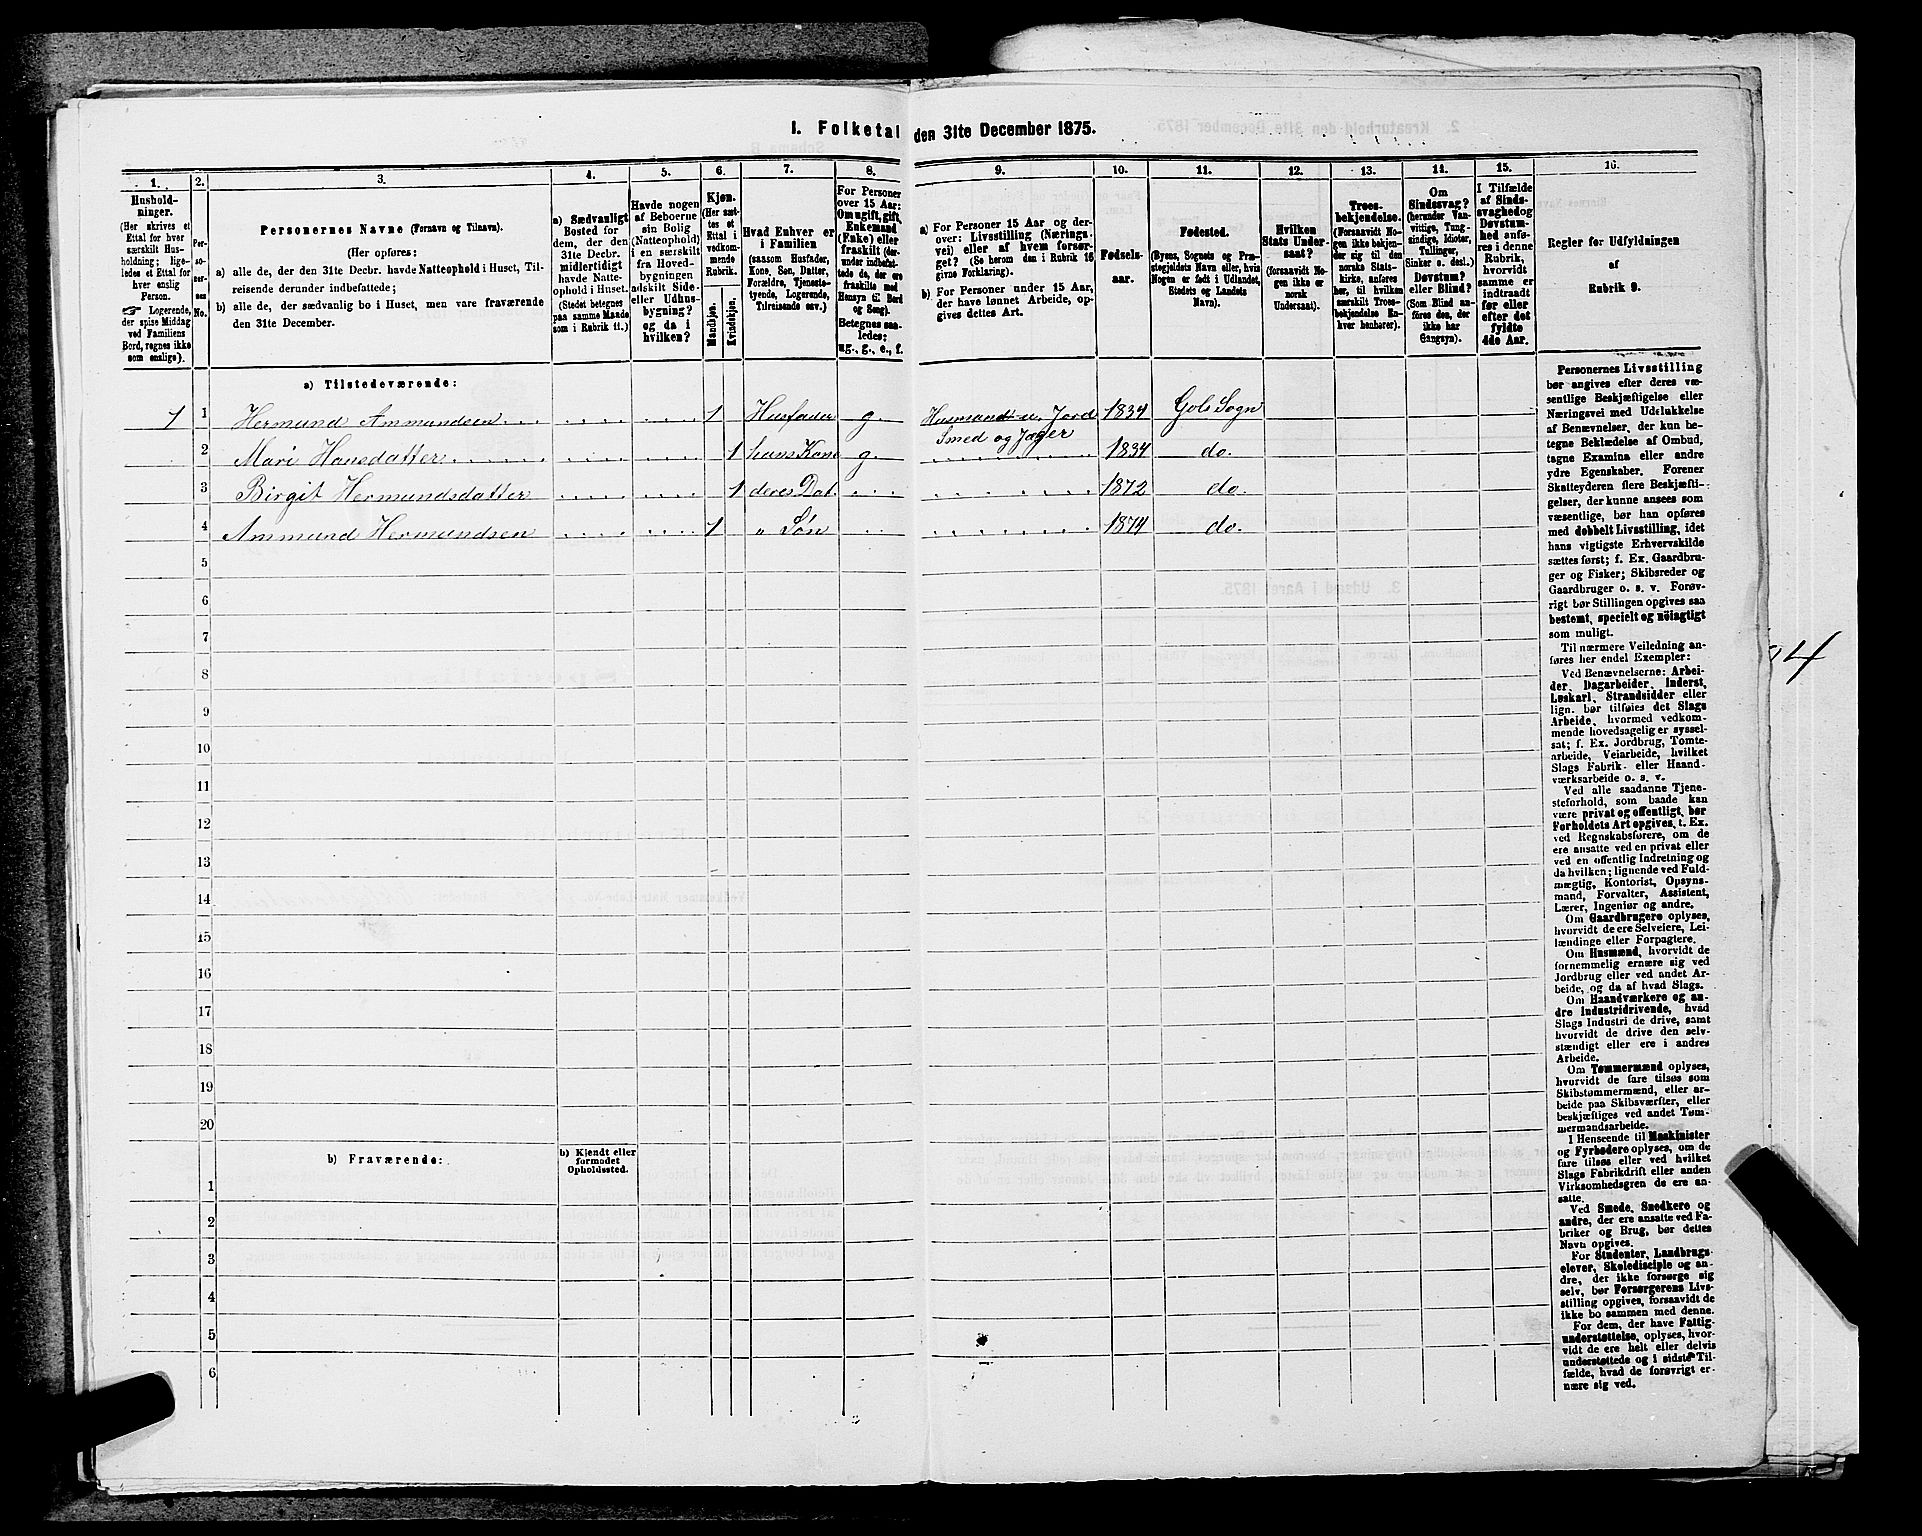 I. Folketal den 31te December 1875.
1. 2. 3. 4. 5. 6. 7. 8. 9. 10. 11. 12. 13. 14. 15. 16.
Hushold-
ninger.
(Her skrives et
Ettal for hver
særskilt Hus-
holdning; lige-
ledes et Ettal for
hver enslig
Person.
☞ Logerende,
der spise Middag
ved Familiens
Bord, regnes ikke
som enslige).
Per-
so-
ner-
nes
No.
Personernes Navne (Fornavn og Tilnavn).
(Her opføres:
a) alle de, der den 31te Decbr. havde Natteophold i Huset, Til-
reisende derunder indbefattede;
b) alle de, der sædvanlig bo i Huset, men vare fraværende
den 31te December.
a) Sædvanligt
Bosted for
dem, der den
31te Decbr.
midlertidigt
havde Natte-
ophold i Huset.
(Stedet betegnes
paa samme Maade
som i Rubrik 11.)
Havde nogen
af Beboerne
sin Bolig
(Natteophold)
i en særskilt
fra Hoved-
bygningen
adskilt Side-
eller Udhus-
bygning?
og da i
hvilken?
Kjøn.
(Her sæt-
tes et
Ettal i
vedkom-
mende
Rubrik.
Mandkjøn.
Kvindekjøn.
Hvad Enhver er
i Familien
(saasom Husfader,
Kone, Søn, Datter,
Forældre, Tjeneste-
tyende, Logerende,
Tilreisende osv.)
For Personer
over 15 Aar:
Om ugift, gift,
Enkemand
(Enke) eller
fraskilt (der-
under indbefat-
tede de, der ere
fraskilte med
Hensyn til Bord
og Seng).
Betegnes saa-
ledes:
ug., g., e., f.
a) For Personer 15 Aar og der-
over: Livsstilling (Nærings-
vei) eller af hvem forsør-
get? (Se herom den i Rubrik 16
givne Forklaring).
b) For Personer under 15 Aar,
der have lønnet Arbeide, op-
gives dettes Art.
Fødsels-
aar.
Fødested.
(Byens, Sognets og Præ-
stegjeldets Navn eller, hvis
Nogen er født i Udlandet,
Stedets og Landets
Navn).
Hvilken
Stats Under-
saat?
(forsaavidt No-
gen ikke er
norsk
Undersaat).
Troes-
bekjendelse.
(Forsaavidt No-
gen ikke bekjen-
der sig til den
norske Stats-
kirke, anføres
her, til hvilken
særskilt Troes-
bekjendelse En-
hver henhører).
Om
Sindssvag?
(herunder Van-
vittige, Tung-
sindige, Idioter,
Tullinger,
Sinker o. desl.)
Døvstum?
eller Blind?
(Som Blind an-
føres den, der
ikke har
Gangsyn).
I Tilfælde
af Sinds-
svaghed og
Døvstum-
hed anfø-
res i denne
Rubrik,
hvorvidt
samme er
indtraadt
før eller
efter det
fyldte
4de Aar.
Regler for Udfyldningen
af
Rubrik 9.
a) Tilstedeværende:
1 1 Hermund Ammundsen 1 Husfader g. Husmand m. Jord 1834 Gols Sogn
Smed og Jæger
2 Mari Hansdatter 1 hans Kone g. 1834 do.
3 Birgit Hermundsdatter 1 deres Dat. 1872 do.
4 Ammund Hermundsen 1 „ Søn 1874 do.
5
6
7
8
9
10
11
12
13
14
15
16
17
18
19
20
b) Fraværende:
b) Kjendt eller
formodet
Opholdssted.
1
2
3
4
5
6
Personernes Livsstilling
bør angives efter deres væ-
sentlige Beskjæftigelse eller
Næringsvei med Udelukkelse
af Benævnelser, der kun be-
tegne Beklædelse af Ombud,
tagne Examina eller andre
ydre Egenskaber. Forener
Skatteyderen flere Beskjæfti-
gelser, der kunne ansees som
væsentlige, bør han opføres
med dobbelt Livsstilling, idet
hans vigtigste Erhvervskilde
sættes først; f. Ex. Gaardbru-
ger og Fisker; Skibsreder og
Gaardbruger o. s. v. Forøv-
rigt bør Stillingen opgives saa
bestemt, specielt og nöiagtigt
som muligt.
Til nærmere Veiledning an-
føres her endel Exempler:
Ved Benævnelserne: Arbei-
der, Dagarbeider, Inderst,
Løskarl, Strandsidder eller
lign. bør tilføies det Slags
Arbeide, hvormed vedkom-
mende hovedsagelig er syssel-
sat; f. Ex. Jordbrug, Tomte-
arbeide, Veiarbeide, hvilket
Slags Fabrik- eller Haand-
værksarbeide o. s. v.
Ved alle saadanne Tjene-
steforhold, som baade kan
være privat og offentligt, bør
Forholdets Art opgives, t. Ex.
ved Regnskabsførere, om de
ere ansatte ved en privat eller
ved en offentlig Indretning og
da hvilken; lignende ved Fuld-
mægtig, Kontorist, Opsyns-
mand, Forvalter, Assistent,
Lærer, Ingeniør og andre.
Om Gaardbrugere oplyses,
hvorvidt de ere Selveiere, Lei-
lændinge eller Forpagtere.
Om Husmænd, hvorvidt de
fornemmelig ernære sig ved
Jordbrug eller ved andet Ar-
beide, og da af hvad Slags.
Om Haandværkere og an-
dre Industridrivende, hvad
Slags Industri de drive, samt
hvorvidt de drive den selv-
stændigt eller ere i andres
Arbeide.
Om Tømmermænd oplyses,
hvorvidt de fare tilsøs som
Skibstømmermænd, eller ar-
beide paa Skibsværfter, eller
beskjæftiges ved andet Tøm-
mermandsarbeide.
I Henseende til Maskinister
og Fyrbødere oplyses, om de
fare tilsøs eller ved hvilket
Slags Fabrikdrift eller anden
Virksomhedsgren de ere an-
satte.
Ved Smede, Snedkere og
andre, der ere ansatte ved Fa-
briker og Brug, bør dettes
Navn opgives.
For Studenter, Landbrugs-
elever, Skoledisciple og an-
dre, der ikke forsørge sig
selv, bør Forsørgerens Livs-
stilling opgives, forsaavidt de
ikke bo sammen med denne.
For dem, der have Fattig-
understøttelse, oplyses, hvor-
vidt de ere helt eller delvis
understøttede og i sidste Til-
fælde, hvad de forøvrigt er-
nære sig ved.